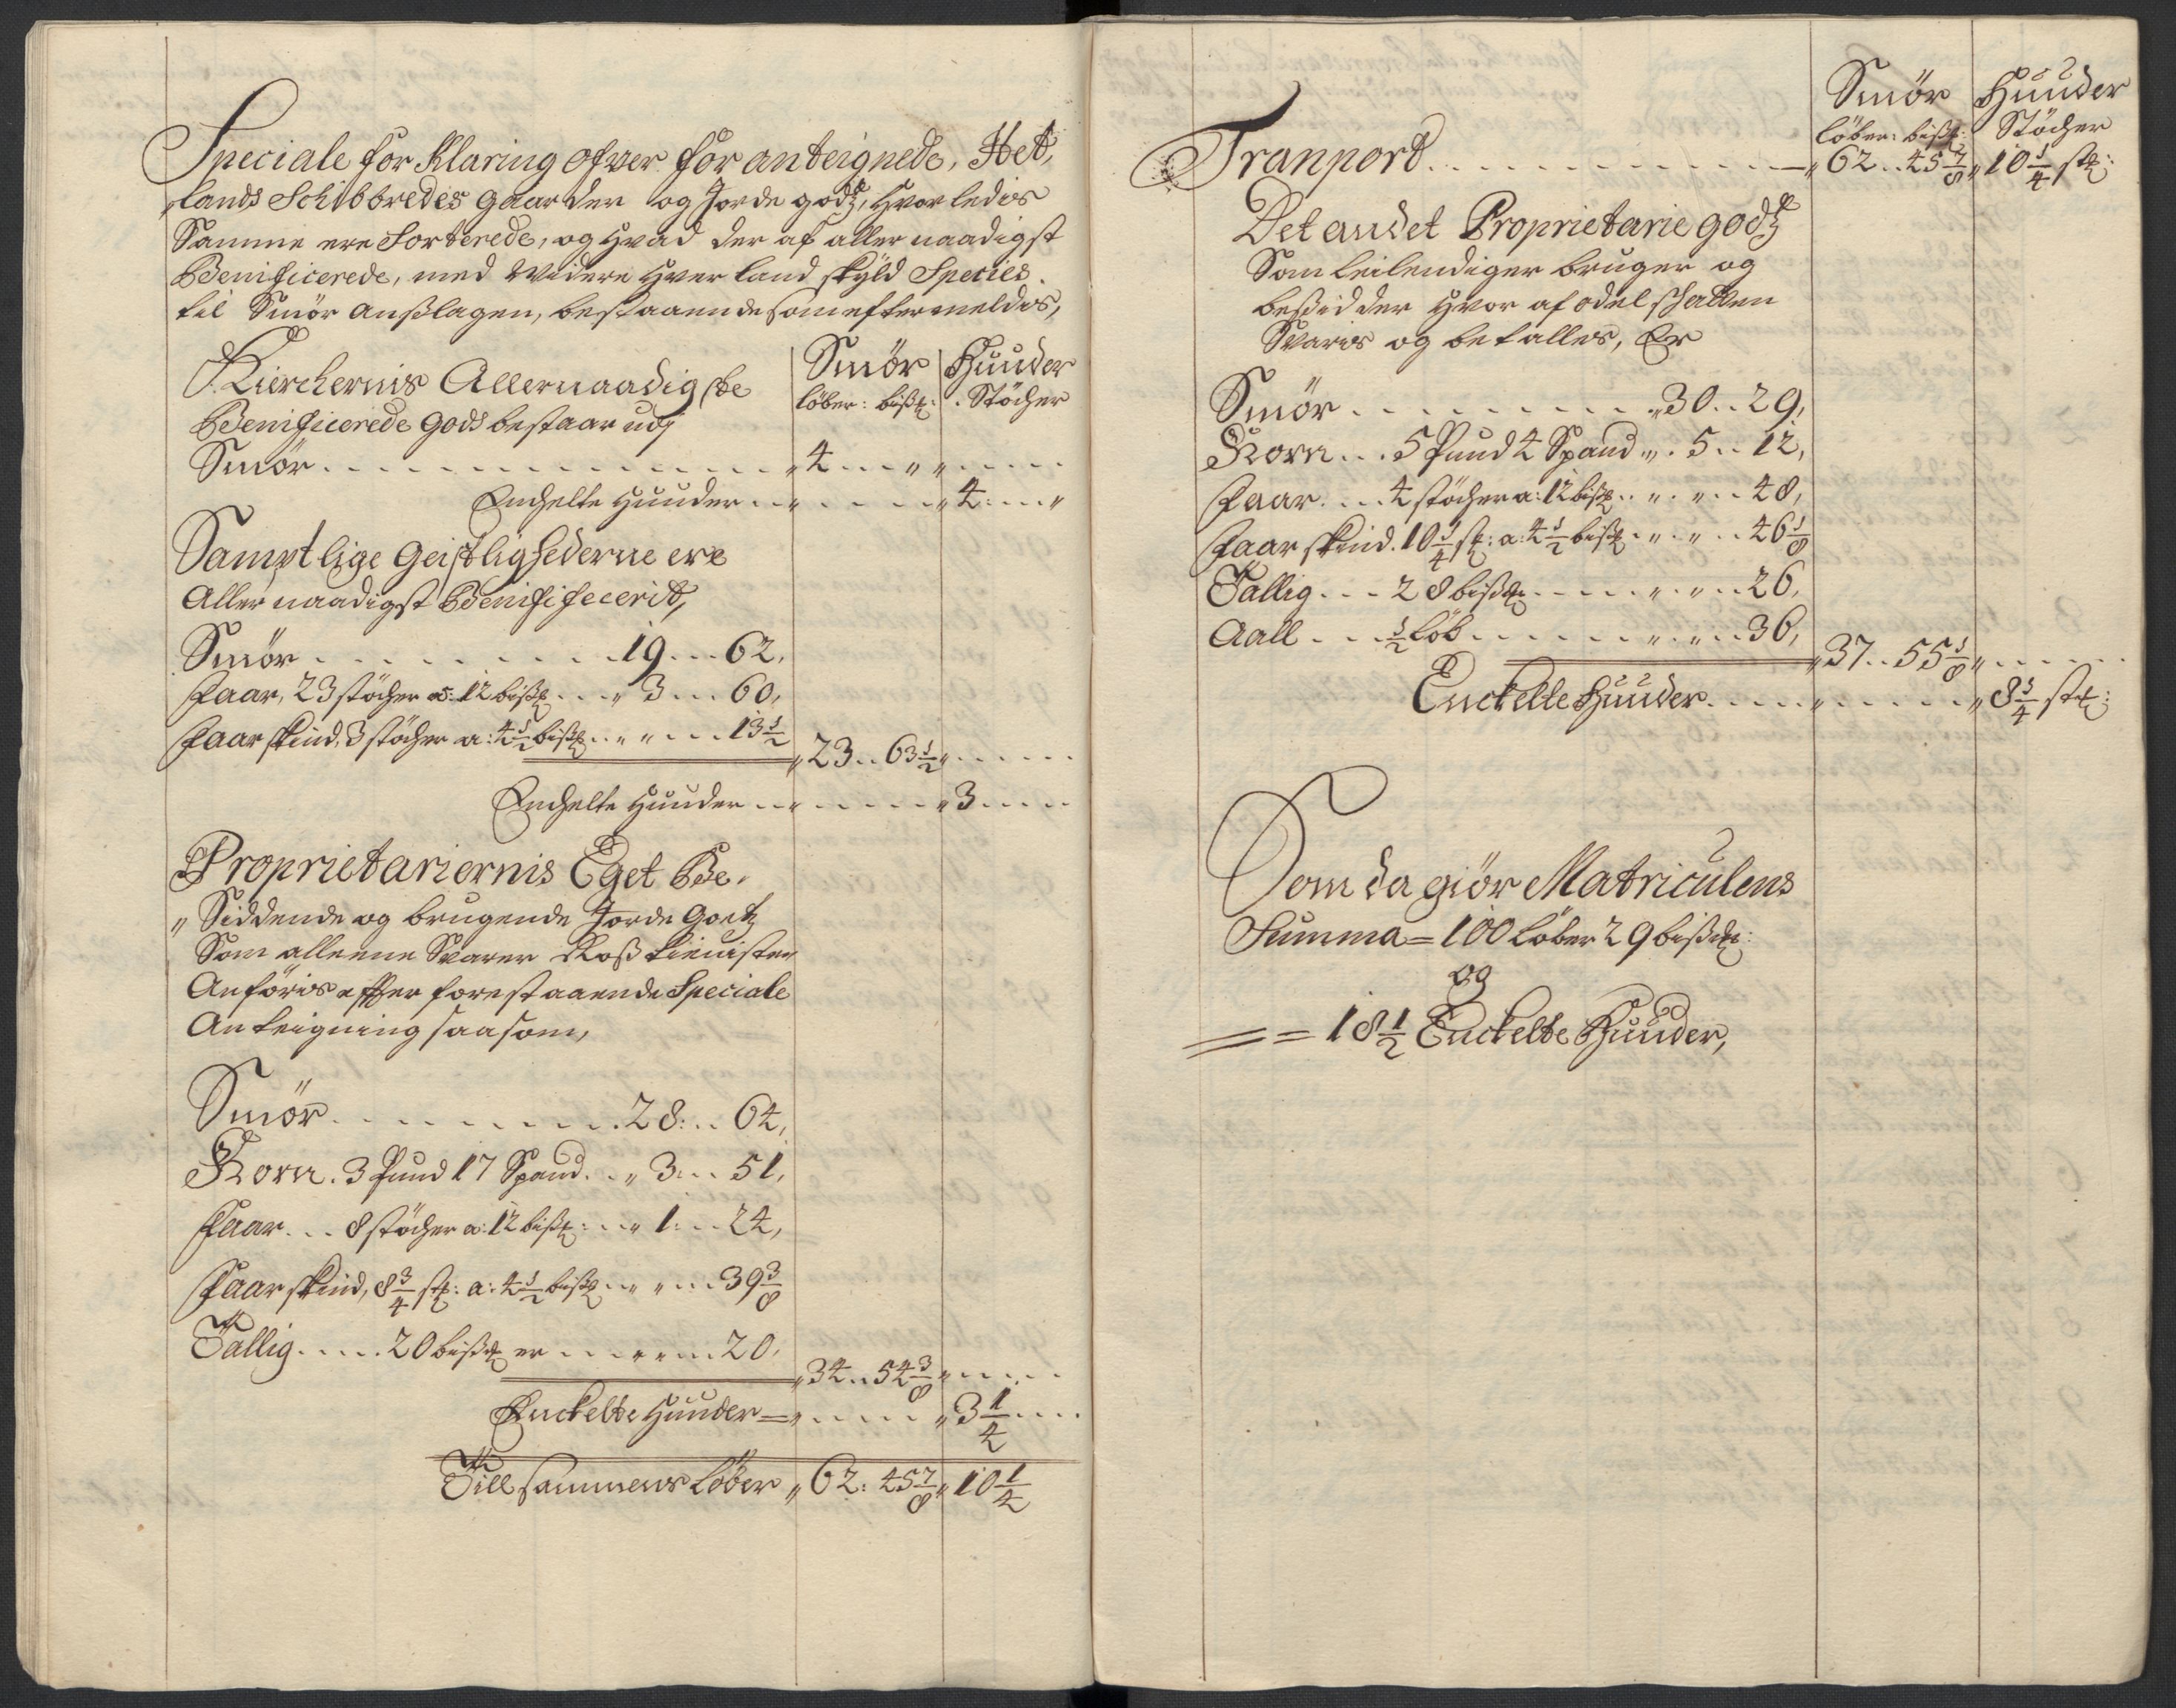 Speciale for Klaring ofver for anteignede, Het,
"lands Schibbredes gaarder og Jorde godz, hvorledis
Samme ere Sorterede, og hvad der af allernaadigst
Benificerede, med Widere hver land skyld Species
til Smör anßlagen, bestaaende som eftermeldis,
Smör | Huuder
löber: bißk: | Stöcher
Kierchernis Allernaadigste
Benificerede gods bestaar udj
Smör . . . " 4 . . . " " . . .
Enchelte huuder . . . " . . . " 4: . . "
Samptlige Geistlighederne ere
Allernaadigst Benifificerit,
Smör . . . 19 . . 62,
Faar, 23 stöcher a: 12 bißk . . " 3 . . 60,
Faar skind, 3 stöcher a: 4 1/2 bißk . . " " . . . 13 1/2
" 23 . . 63 1/2 " . . .
Enchelte huuder . . . " . . . " 3 . . .
Proprietariernis Eget Be,
" Siddende og brugende Jorde Goetz
Som alleene Svarer Roß tienisten
Anföris effter forestaaende Speciale
Anteigning saasom,
Smör . . . 28: . . 64,
Korn . 3 Pund 17 Spand . . " 3 . . . 51,
Faar . . . 8 stöcher a: 12 bißk: . . " 1: . . 24,
Faar skind, 8 3/4 stk: a: 4 1/2 bißk . . " " . . . 39 3/8
Tallig . . . . 20 bißk er . . . " " . . . 20,
" 34 . . 54 3/8 " . . .
Enckelte Huuder = " . . . " 3 1/4 . . .
Till sammens Löber " 62: 45 7/8 " 10 1/4
Smör | Huuder
löber: bißk: | Stöcher
Tranport . . . " 62 . . 45 7/8 " 10 1/4 stk:
Det andet Proprietarie godz
Som leilendiger bruger og
beßidder hvor af odel skatten
Svaris og betalles, Er
Smör . . . " 30 . . 29,
Korn . . . 5 Pund 4 Spand " . 5 . . 12,
Faar . . . 4 stöcher a: 12 bißk . . " . " . . 48,
Faar skind. 10 1/4 stk: a: 4 1/2 bißk . " . " . . 46 1/8
Tallig . . . 28 bißk . . . " . " . . 26,
Aall . . . 1/2 löb . . . " . " . . 36,
" 37 . . 55 1/8 " . . .
Enckelte Huuder . . . " . . . " 8 1/4 stk:
Som da giör Matriculens
Summa = 100 Löber 29 bißk:
og
= = 18 1/2 Enckelte Huuder,